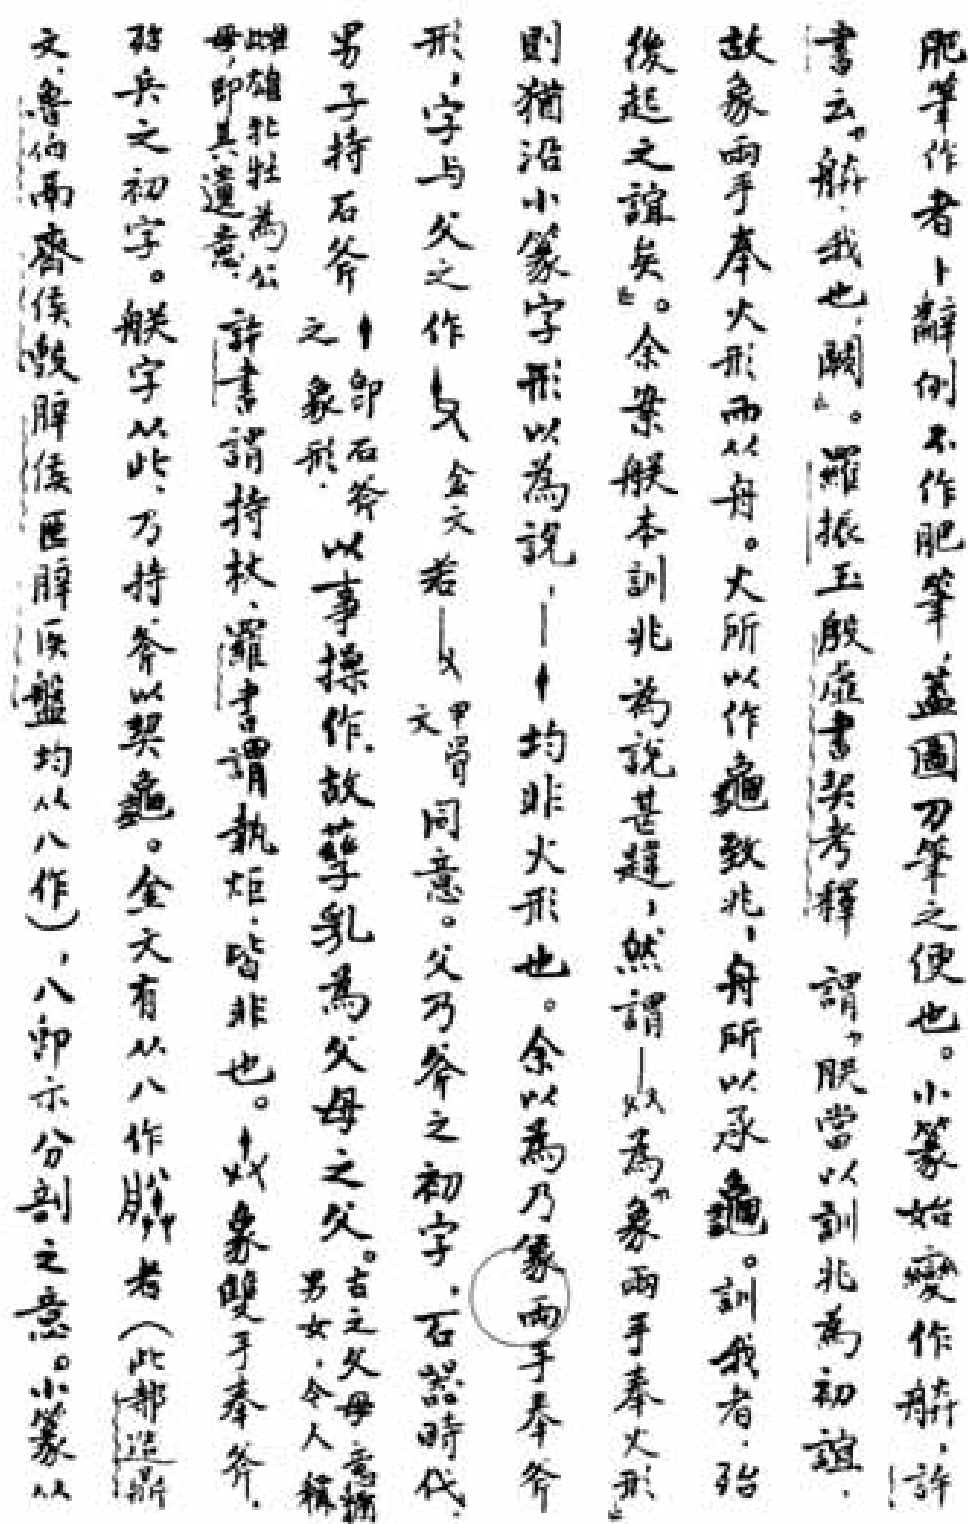 肥筆作者卜辭例不作肥筆，蓋圖刀筆之便也。小篆始變作䑞，許
書云“䑞，我也，闕”。羅振玉殷虛書契考釋 謂“朕當以訓兆為初誼，
故象兩手奉火形而从舟。火所以作龜致兆，舟所以承龜。訓我者，殆
後起之誼矣”。余案朕本訓兆為說甚韙，然謂 為“象兩手奉火形”
則猶沿小篆字形以為說，丨 均非火形也。余以為乃象兩手奉斧
形，字与父之作 金文 若 甲骨文 同意。父乃斧之初字。石器時代，
男子持石斧 即石斧之象形， 以事操作，故孳乳為父母之父。古之父母意猶男女，今人稱
雌雄牝牡為公母，即其遺意， 許書謂持杖，羅書謂執炬，皆非也。 象雙手奉斧，
兵之初字。朕字从此，乃持斧以契龜。金文有从八作 者（此郜造鼎
文，魯伯鬲齊侯敦 侯匜 侯盤均从八作），八即示分剖之意。小篆从